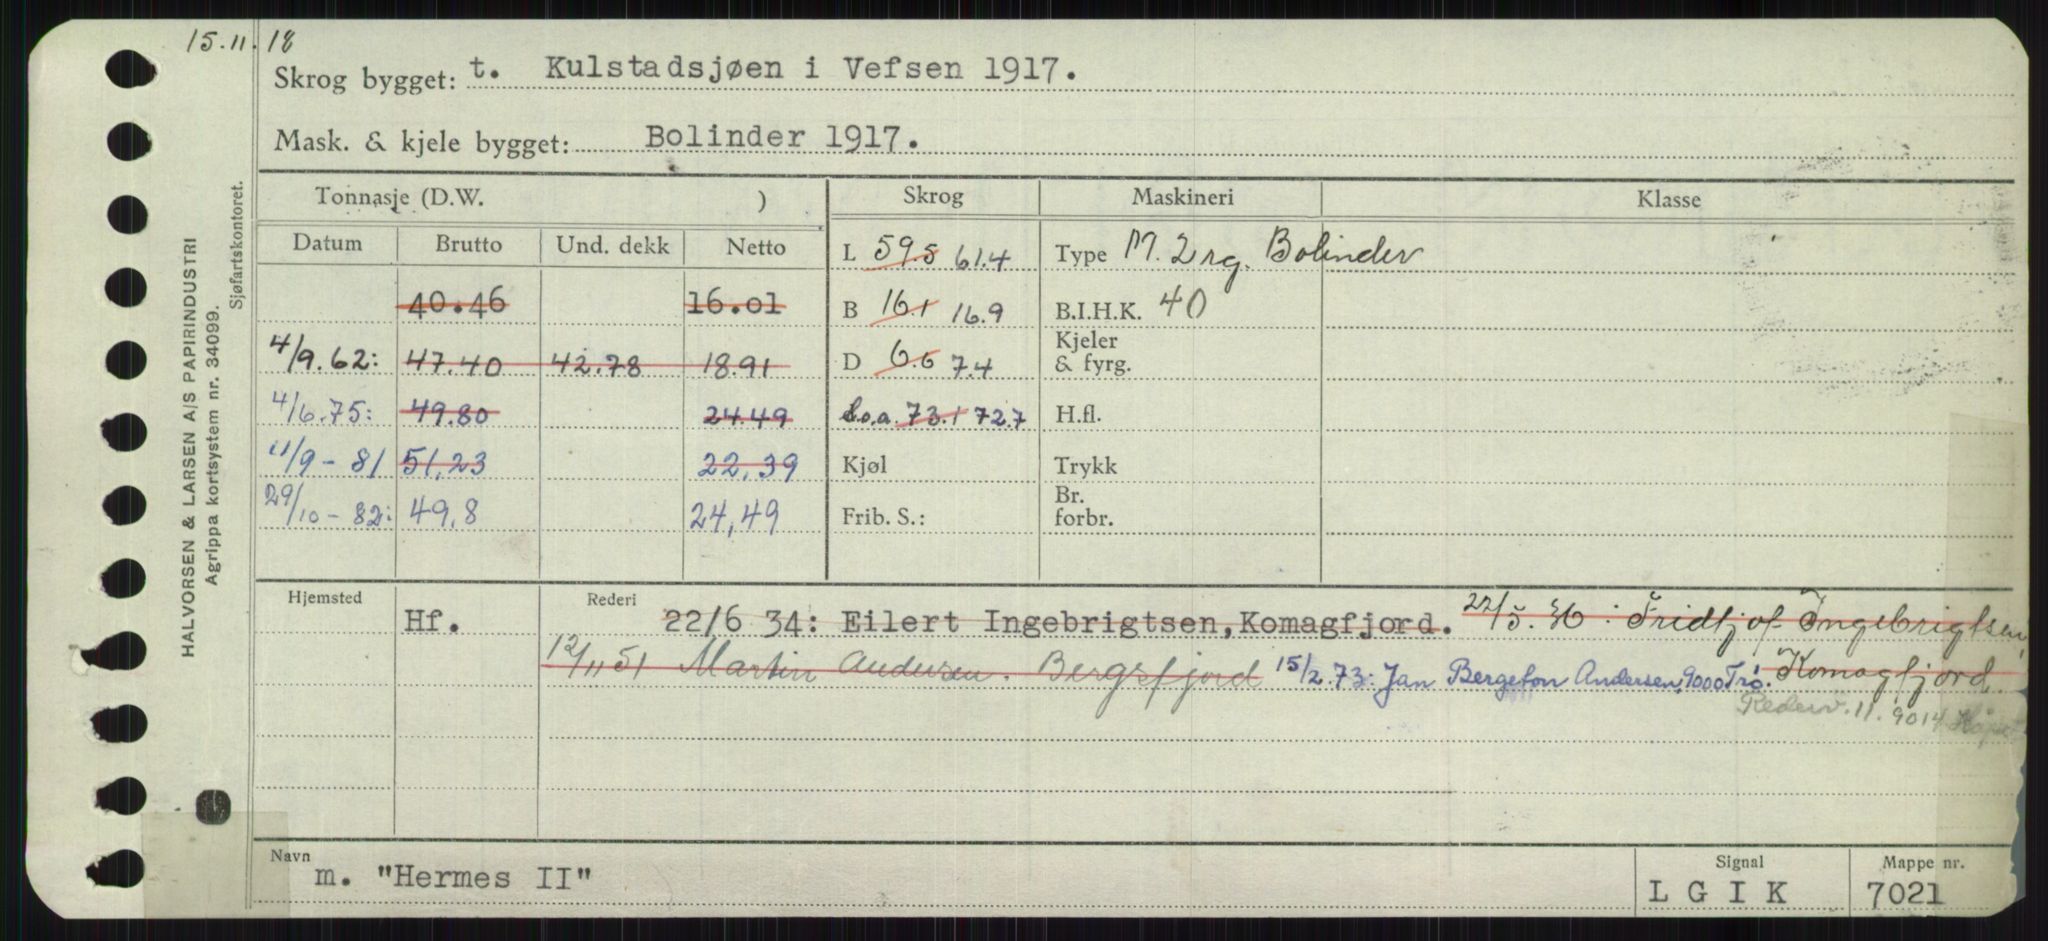 15.11.18
Skrog bygget: t. Kulstadsjøen i Vefsen 1917.
Mask. & kjele bygget: Bolinder 1917.
Tonnasje (D.W. ) Skrog Maskineri Klasse
Datum Brutto Und. dekk Netto L 59.5 61.4 Type M. 2 rg. Bolinder
40.46 16.01 B 16.1 16.9 B.I.H.K. 40
4/9.62: 47.40 42.78 18.91 D 6.6 7.4 Kjeler & fyrg.
4/6.75: 49.80 24.49 L.o.a. 73.1 72.7 H.fl.
11/9-81 51,23 22,39 Kjøl Trykk
29/10-82: 49,8 24,49 Frib. S.: Br. forbr.
Hjemsted Hf. Rederi 22/6 34: Eilert Ingebrigtsen, Komagfjord. 22/5.36: Fridtjof Ingebrigtsen,
12/11 51 Martin Andersen. Bergsfjord 15/2.73: Jan Bergeton Andersen, 9000 Trø. Komagfjord.
11. 9014
Navn m. "Hermes II" Signal LGIK Mappe nr. 7021
HALVORSEN & LARSEN A/S PAPIRINDUSTRI
Agrippa kortsystem nr. 34099.
Sjøfartskontoret.